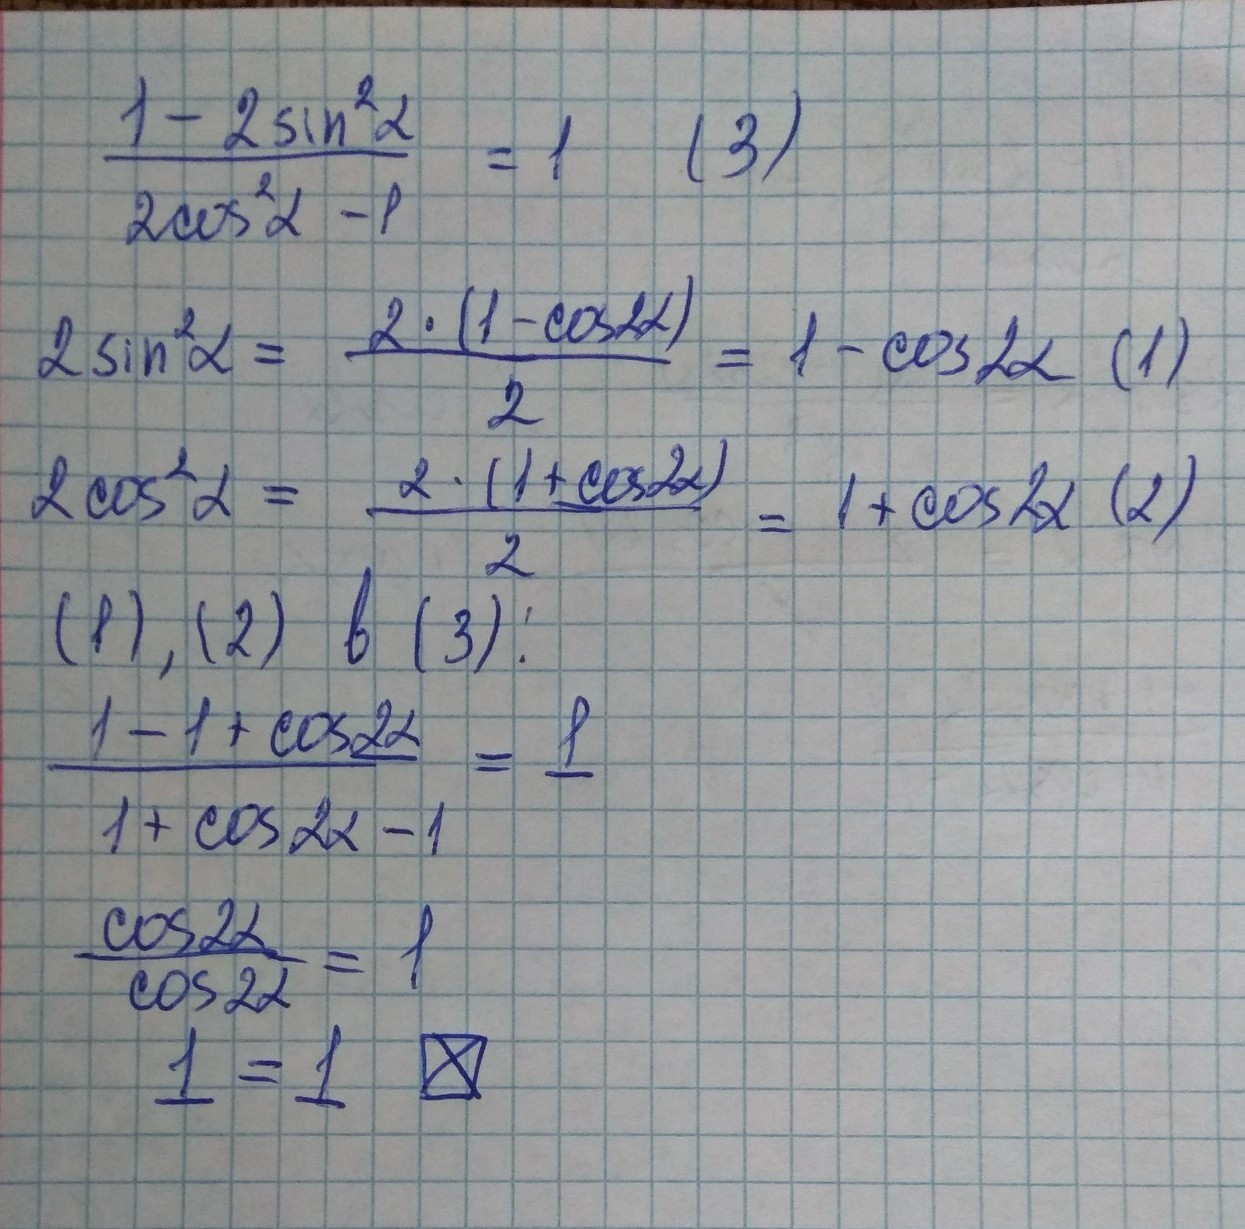 (1 - 2sin²α)/(2cos²α - 1) = 1 (3)
2sin²α = (2·(1-cos2α))/2 = 1 - cos2α (1)
2cos²α = (2·(1+cos2α))/2 = 1 + cos2α (2)
(1), (2) в (3):
(1 - 1 + cos2α)/(1 + cos2α - 1) = 1
cos2α/cos2α = 1
1 = 1